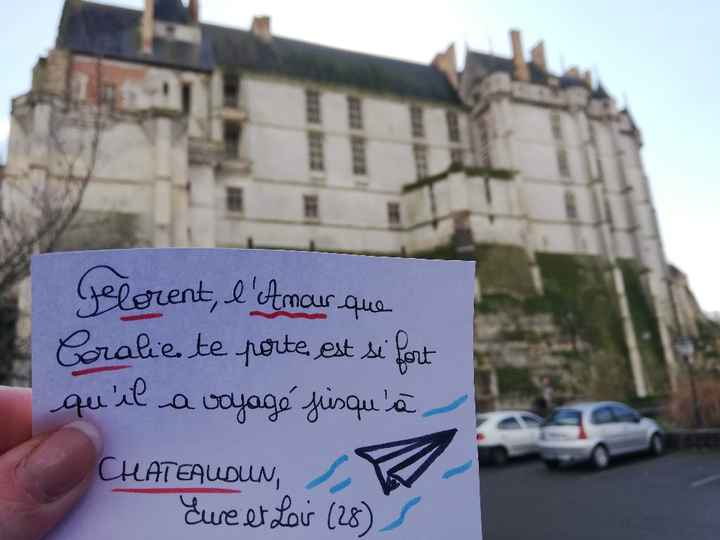 Florent, l'Amour que
Coralie te porte est si fort
qu'il a voyagé jusqu'à
CHATEAUDUN,
Eure et Loir (28)